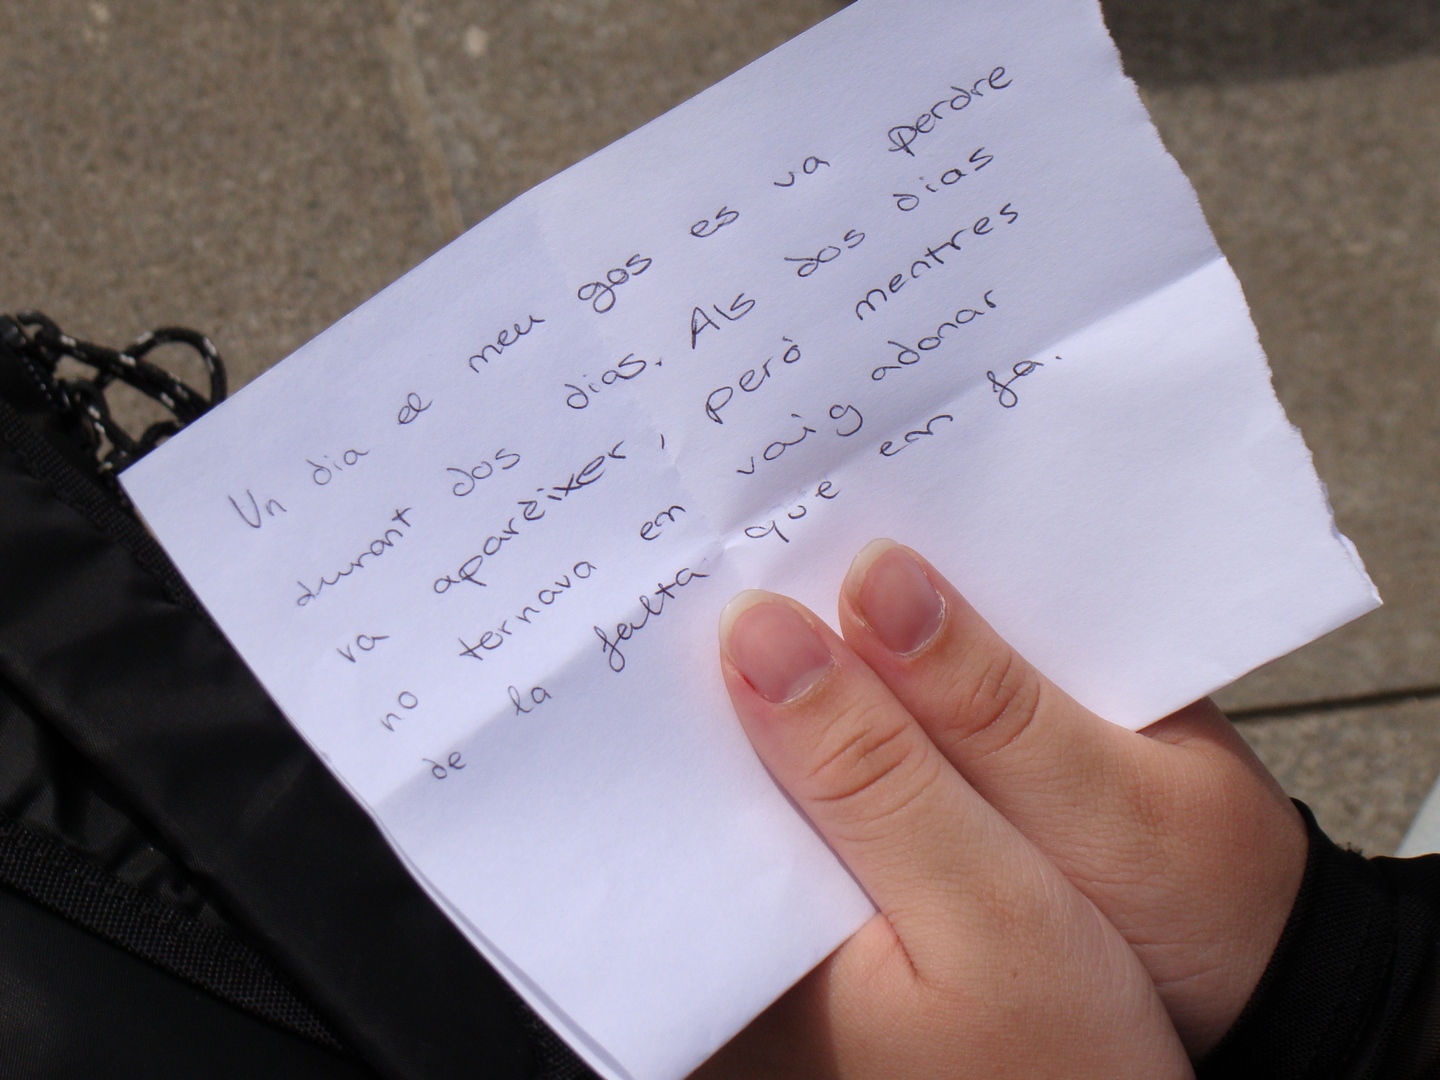 Un dia el meu gos es va perdre
durant dos dias. Als dos dias
va aparèixer, però mentres
no tornava em vaig adonar
de la falta que em fa.